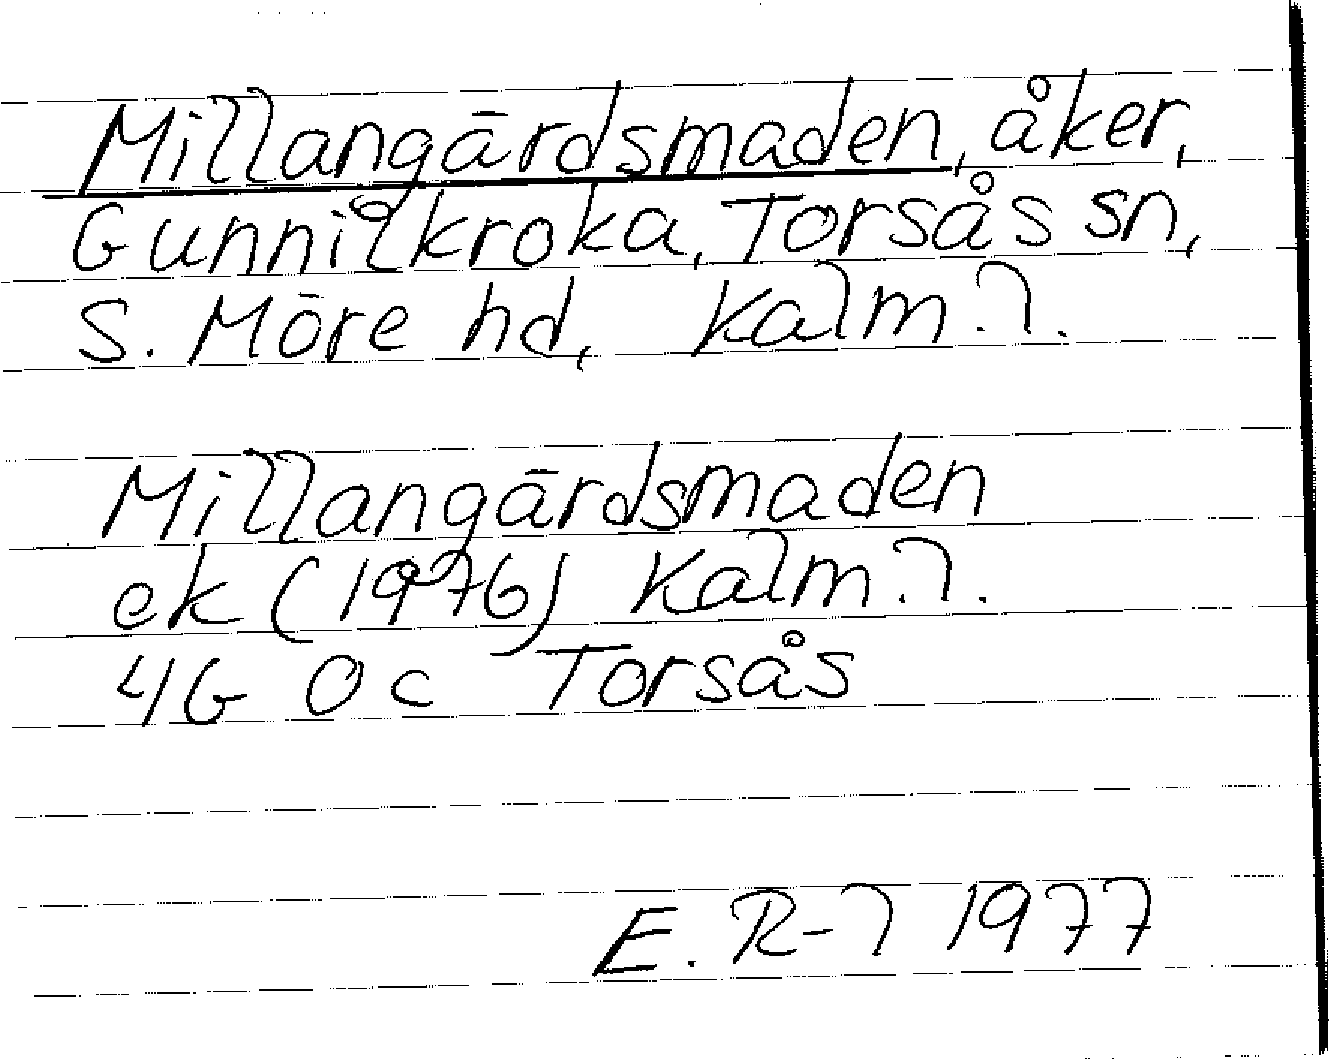 Millangärdsmaden, åker,
Gunnilkroka, Torsås sn,
S. Möre hd, Kalm. l.
Millangärdsmaden
ek (1976) Kalm. l.
4G 0c Torsås
E. R-l 1977